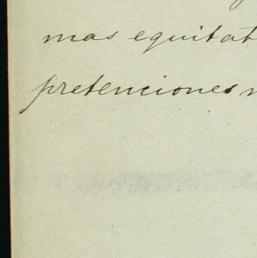 mas equitat
pretenciones